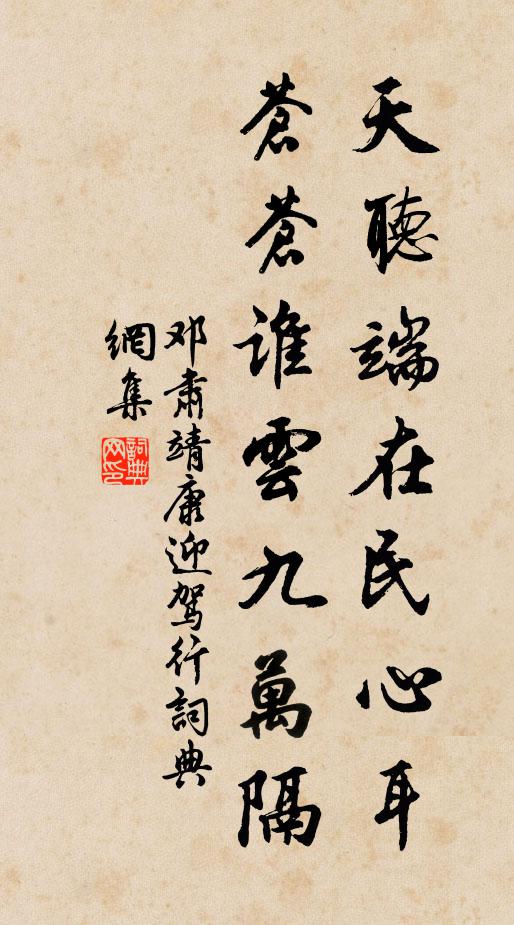 天聽端在民心耳
蒼蒼誰雲九萬隔
邓肅靖康迎駕行詞典
網集
詞典
网印